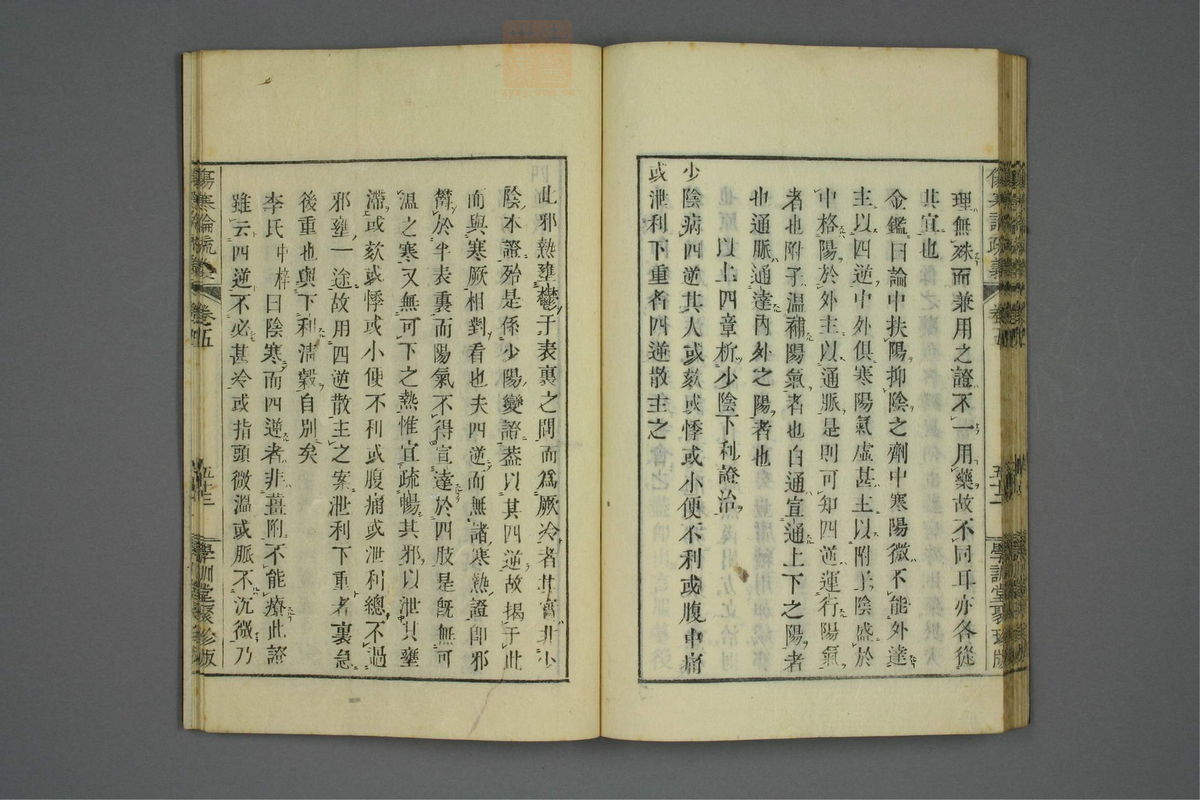 理無殊而兼用之證不一用藥故不同耳亦各從
其宜也
金鑑曰論中扶陽抑陰之劑中寒陽微不能外達
主以四逆中外俱寒陽氣虛甚主以附子陰盛於
中格陽於外主以通脈是則可知四逆運行陽氣
者也附子溫補陽氣者也白通宣通上下之陽者
也通脈通達內外之陽者也
以上四章析少陰下利證治
少陰病四逆其人或欬或悸或小便不利或腹中痛
或泄利下重者四逆散主之
此邪熱壅鬱于表裏之間而爲厥冷者其實非少
陰本證殆是係少陽變證蓋以其四逆故揭于此
而與寒厥相對看也夫四逆而無諸寒熱證卽邪
鬱於半表裏而陽氣不得宣達於四肢是旣無可
溫之寒又無可下之熱惟宜疏暢其邪以泄其壅
滯或欬或悸或小便不利或腹痛或泄利總不過
邪壅一途故用四逆散主之案泄利下重者裏急
後重也與下利淸穀自別矣
李氏中梓曰陰寒而四逆者非薑附不能療此證
雖云四逆不必甚冷或指頭微溫或脈不沉微乃
傷寒論疏義 卷之五 五十三 學訓堂聚珍版